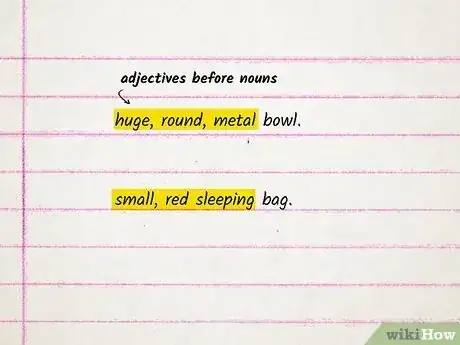 adjectives before nouns
huge, round, metal bowl.
small, red sleeping bag.
wikiHow